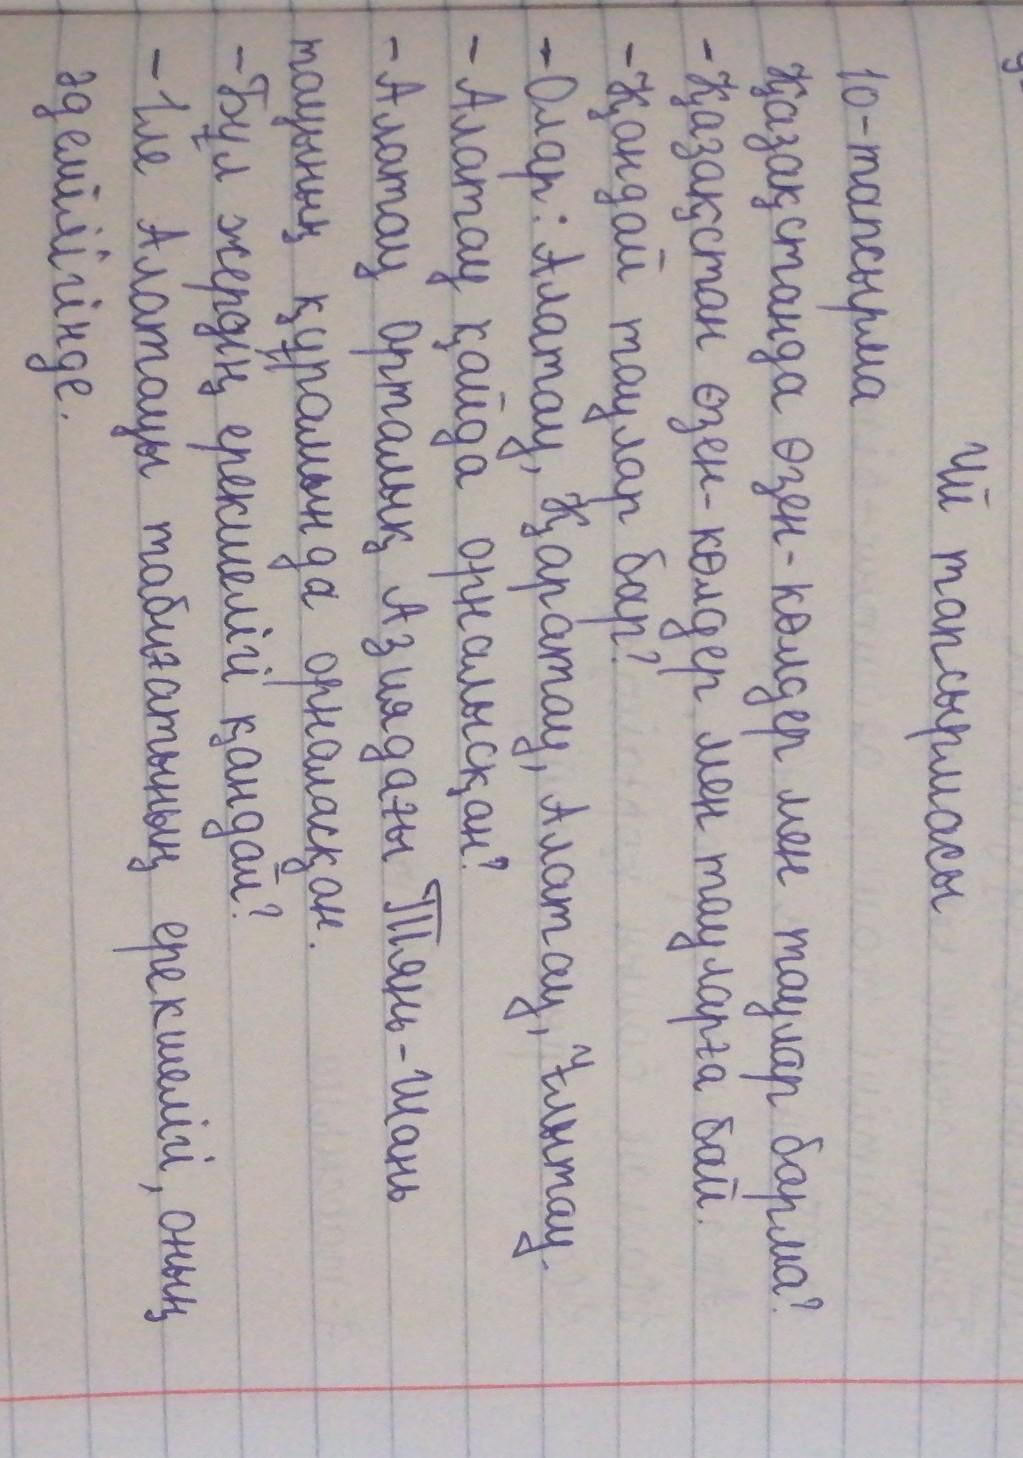 Үй тапсырмасы
10-тапсырма
Қазақстанда өзен-көлдер мен таулар барма?
-Қазақстан өзен-көлдер мен тауларға бай.
-Қандай таулар бар?
-Олар: Алатау, Қаратау, Алатау, Ұлытау.
- Алатау қайда орналысқан?
-Алатау орталық Азиядағы Тянь-Шань
тауының құрамында орналасқан.
-Бұл жердің ерекшелігі қандай?
-Іле Алатауы табиғатының ерекшелігі, оның
әдемілігінде.